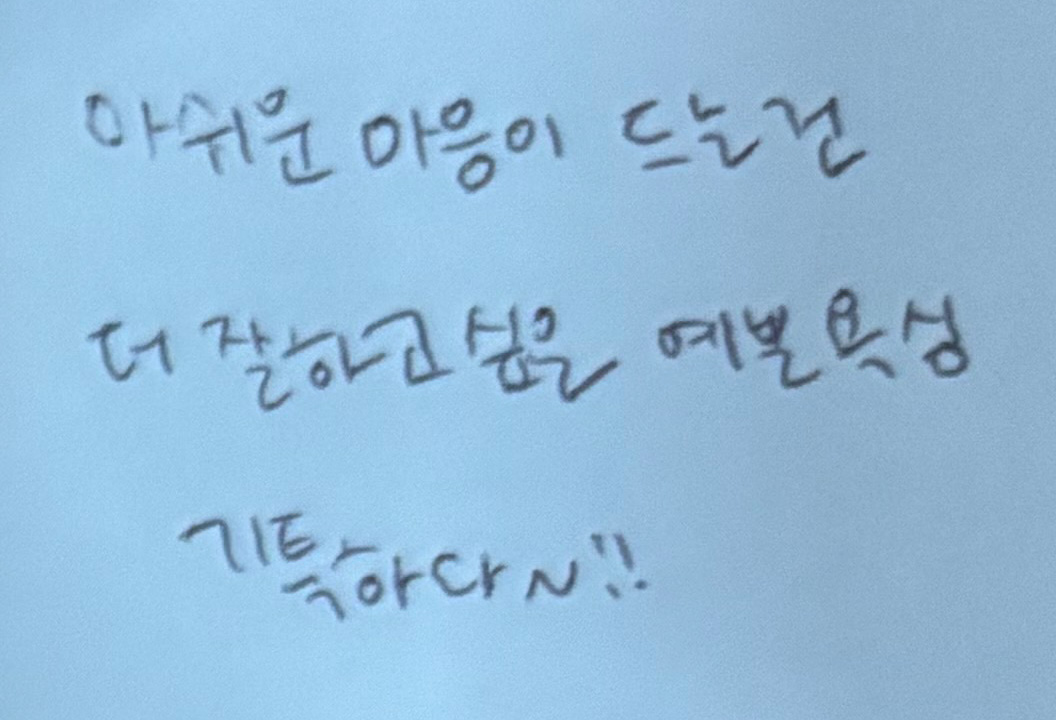 아쉬운 마음이 드는건
더 잘하고싶은 예쁜 욕심
기특하다~!!